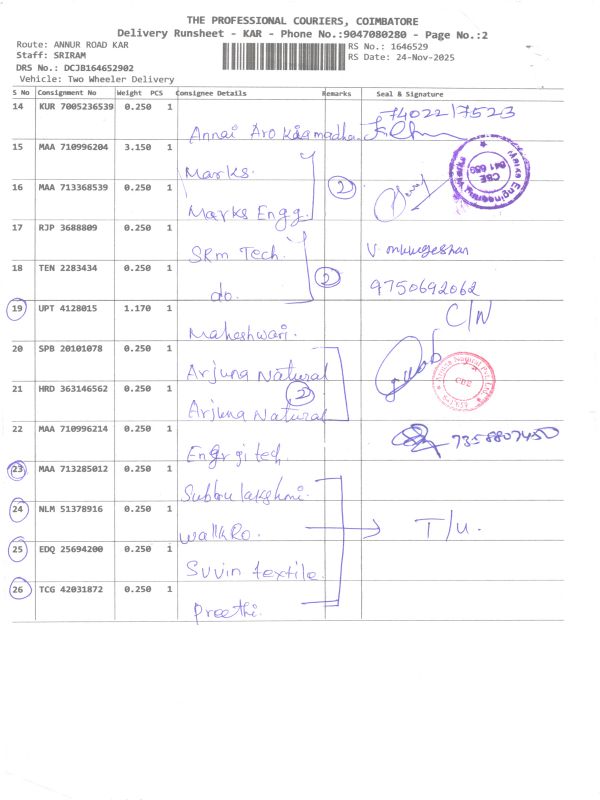 THE PROFESSIONAL COURIERS, COIMBATORE
Delivery Runsheet - KAR - Phone No.:9047080280 - Page No.:2
Route: ANNUR ROAD KAR
Staff: SRIRAM
DRS No.: DCJB164652902
Vehicle: Two Wheeler Delivery
RS No.: 1646529
RS Date: 24-Nov-2025
S No Consignment No Weight PCS Consignee Details Remarks Seal & Signature
14 KUR 7005236539 0.250 1 7402217523
Annai Aro
15 MAA 710996204 3.150 1
Marks.
16 MAA 713368539 0.250 1 2
Marks Engg.
17 RJP 3688809 0.250 1
SRM Tech. V. murugeshan
18 TEN 2283434 0.250 1 2
do. 9750692062
19 UPT 4128015 1.170 1 C/N
Maheshwari.
20 SPB 20101078 0.250 1
Arjuna Natural
21 HRD 363146562 0.250 1 2
Arjuna Natural
22 MAA 710996214 0.250 1 7358807450
Engr gi tech.
23 MAA 713285012 0.250 1
Subbu lakshmi.
24 NLM 51378916 0.250 1
WallkRo. T/U.
25 EDQ 25694200 0.250 1
Suvin textile.
26 TCG 42031872 0.250 1
Preethi.